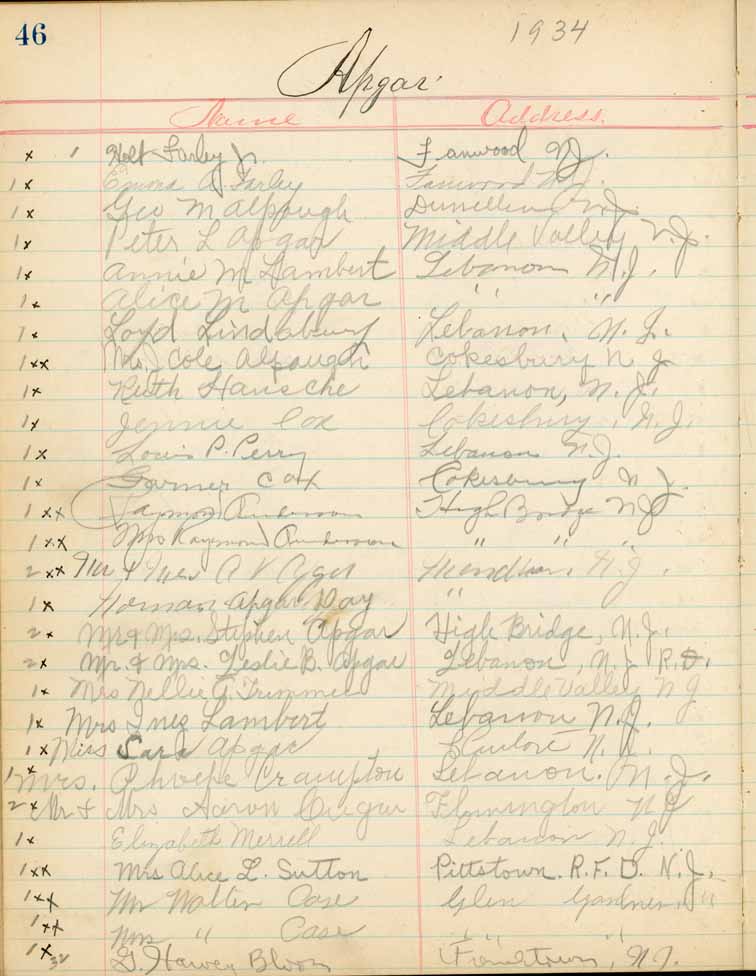 46
1934
Apgar
Name Address.
x 1 Holt Farley Jr. Fanwood NJ.
1x Emma A. Farley Fanwood N.J.
1x Geo M Alpaugh Dunellen N.J.
1x Peter L Apgar Middle Valley N.J.
1x Annie M Lambert Lebanon N.J.
1x Alice M Apgar " "
1x Loyd Lindabury Lebanon, N.J.
1xx Mrs Cole Alpaugh Cokesbury N J
1x Ruth Hansche Lebanon, N.J.
1x Jennie Cox Cokesbury, N.J.
1x Louis P. Perry Lebanon N.J.
1x Cox Cokesbury N J.
1xx Raymond Anderson High Bridge NJ
1xx Mrs Raymond Anderson " " "
2xx Mr & Mrs A V Mendham. N.J.
1x Apgar Day "
2x Mr & Mrs. Stephen Apgar High Bridge, N.J.
2x Mr. & Mrs. Leslie B. Apgar Lebanon, N.J. R.D.
1x Mrs Nellie G. Trimmer Middle Valley N J
1x Mrs Inez Lambert Lebanon N.J.
1x Miss Sara Apgar N.J.
1x Mrs. Phoebe Crampton Lebanon. N.J.
2x Mr & Mrs Aaron Flemington NJ
1x Elizabeth Merrell Lebanon N.J.
1xx Mrs Alice L. Sutton Pittstown. R.F.D. N.J.
1xx Mr Walter Case Glen Gardner, "
1xx Mrs " Case " " "
1x 32 G. Harvey Bloom Frenchtown, N.J.